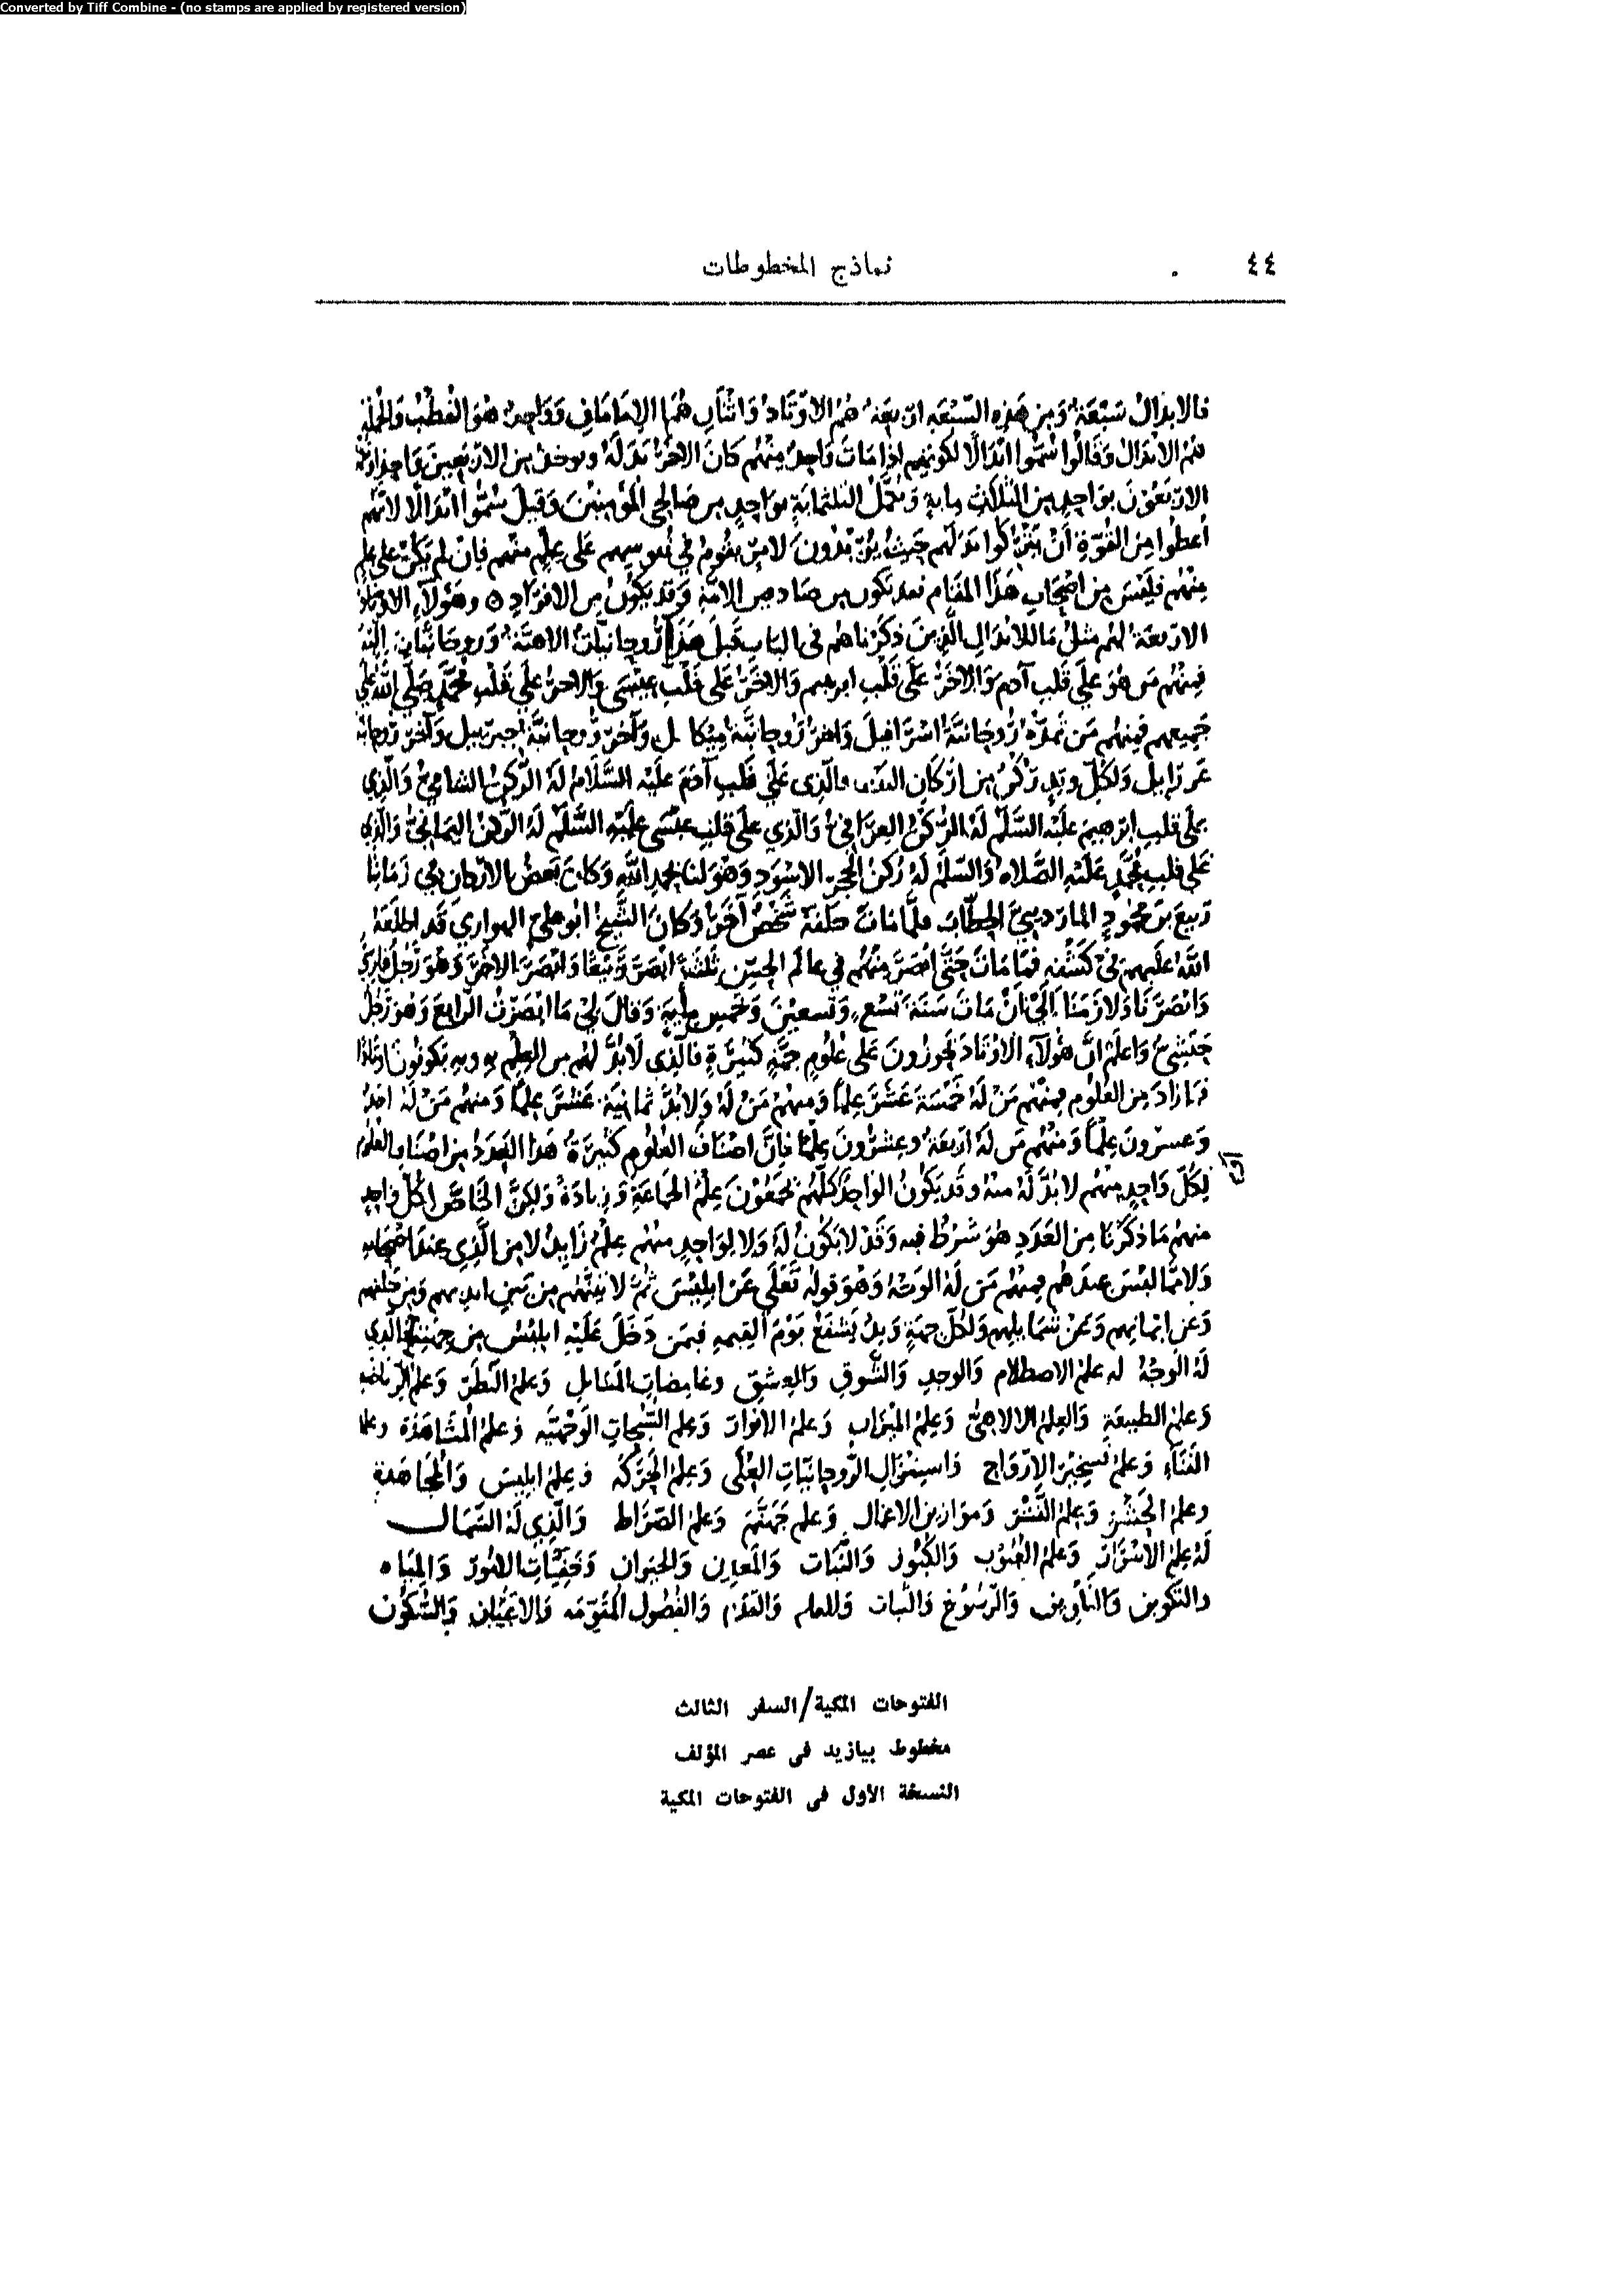 Converted by Tiff Combine - (no stamps are applied by registered version)
٤٤
نماذج المخطوطات
فالابدال سبعة ومن هذه السبعة اربعة هم الاوتاد واثنان هما الامامان وواحد هو القطب والجملة
هم الابدال وقالوا سموا ابدالا لكونهم اذا مات واحد منهم كان الاخر بدله ويوخذ من الاربعين واحد
الاربعون بواحد من الثلاث ماية وتكمل الثلثماية بواحد من صالحي المؤمنين وقيل سموا ابدالا لانهم
اعطوا من القوة أن يتركوا بدلهم حيث يريدون لامر يقوم في نفوسهم على علم منهم فان لم يكن على علم
منهم فليس من اصحاب هذا المقام فقد يكون من صلحا الامة وقد يكون من الافراد وهؤلاء الاوتاد
الاربعة لهم مثل ما للابدال الذين ذكرناهم في الباب قبل هذا روحانية الاهية وروحانية
فمنهم من هو على قلب آدم والاخر على قلب ابرهيم والاخر على قلب عيسى والاخر على قلب محمد صلى الله على
جميعهم فمنهم من تمده روحانية اسرافيل واخر روحانية ميكائل وآخر روحانية جبريل وآخر روحانية
عزرايل ولكل وتد ركن من اركان البيت فالذى على قلب آدم عليه السلام له الركن الشامي والذي
على قلب ابرهيم عليه السلم له الركن العراقي والذي على قلب عيسى عليه السلم له الركن اليماني والذي
على قلب محمد عليه الصلاه والسلم له ركن الحجر الاسود وهو لنا بحمد الله وكان بعض الاركان في زماننا
ربيع بن محمود الماردينيّ الحطاب فلما مات خلفه شخص آخر وكان الشيخ ابو علي الهواري قد اطلعه
الله عليهم في كشفه فما مات حتى ابصر منهم في عالم الحس ثلثة ابصر ربيعا وابصر الاخر وهو رجل فارسي
وابصرنا ولازمنا الى أن مات سنة تسع وتسعين وخمس ماية وقال لي ما ابصرت الرابع وهو رجل
حبشي واعلم ان هؤلاء الاوتاد يحوزون على علوم جمة كثيرة فالذى لا بد لهم من العلم به وبه يكونون اوتادا
فما زاد من العلوم فمنهم من له خمسة عشر علما ومنهم من له ولا بد ثمانية عشر علما ومنهم من له احد
وعشرون علما ومنهم من له اربعة وعشرون علما فان اصناف العلوم كثيرة هذا العدد من اصناف العلوم
لكل واحد منهم لا بد له منه وقد يكون الواحد كلهم يجمعون علم الجماعة وزيادة ولكن الخاص لكل واحد
منهم ما ذكرنا من العدد هو شرط فيه وقد لا يكون له ولا لواحد منهم علم زايد لا من الذي عند اصحابه
ولا مما ليس عندهم فمنهم من له الوجه وهو قوله تعلى عن ابليس ثم لاتينهم من بين ايديهم ومن خلفهم
وعن ايمانهم وعن شمايلهم ولكل جهة وتد يشفع يوم القيمه فيمن دخل عليه ابليس من جهته فالذي
له الوجه له علم الاصطلام والوجد والشوق والعشق وغامضات المسايل وعلم النظر وعلم الرياضه
وعلم الطبيعة والعلم الالاهي وعلم الميزان وعلم الانوار وعلم السبحات الوجهيه وعلم المشاهدة وعلم
الفناء وعلم تسخير الارواح واستنزال الروحانيات العلى وعلم الحركه وعلم ابليس والمجاهدة
وعلم الحشر وعلم النشر وموازين الاعمال وعلم جهنم وعلم الصراط والذي له الشمال
له علم الاسرار وعلم الغيوب والكنوز والنبات والمعدن والحيوان وخفيات الامور والمياه
والتكوين والتلوين والرسوخ والثبات والمقام والقدم والفصول المقومه والاعيان والسكون
الفتوحات المكية/السفر الثالث
مخطوط بيازيد فى عصر المؤلف
النسخة الأول فى الفتوحات المكية